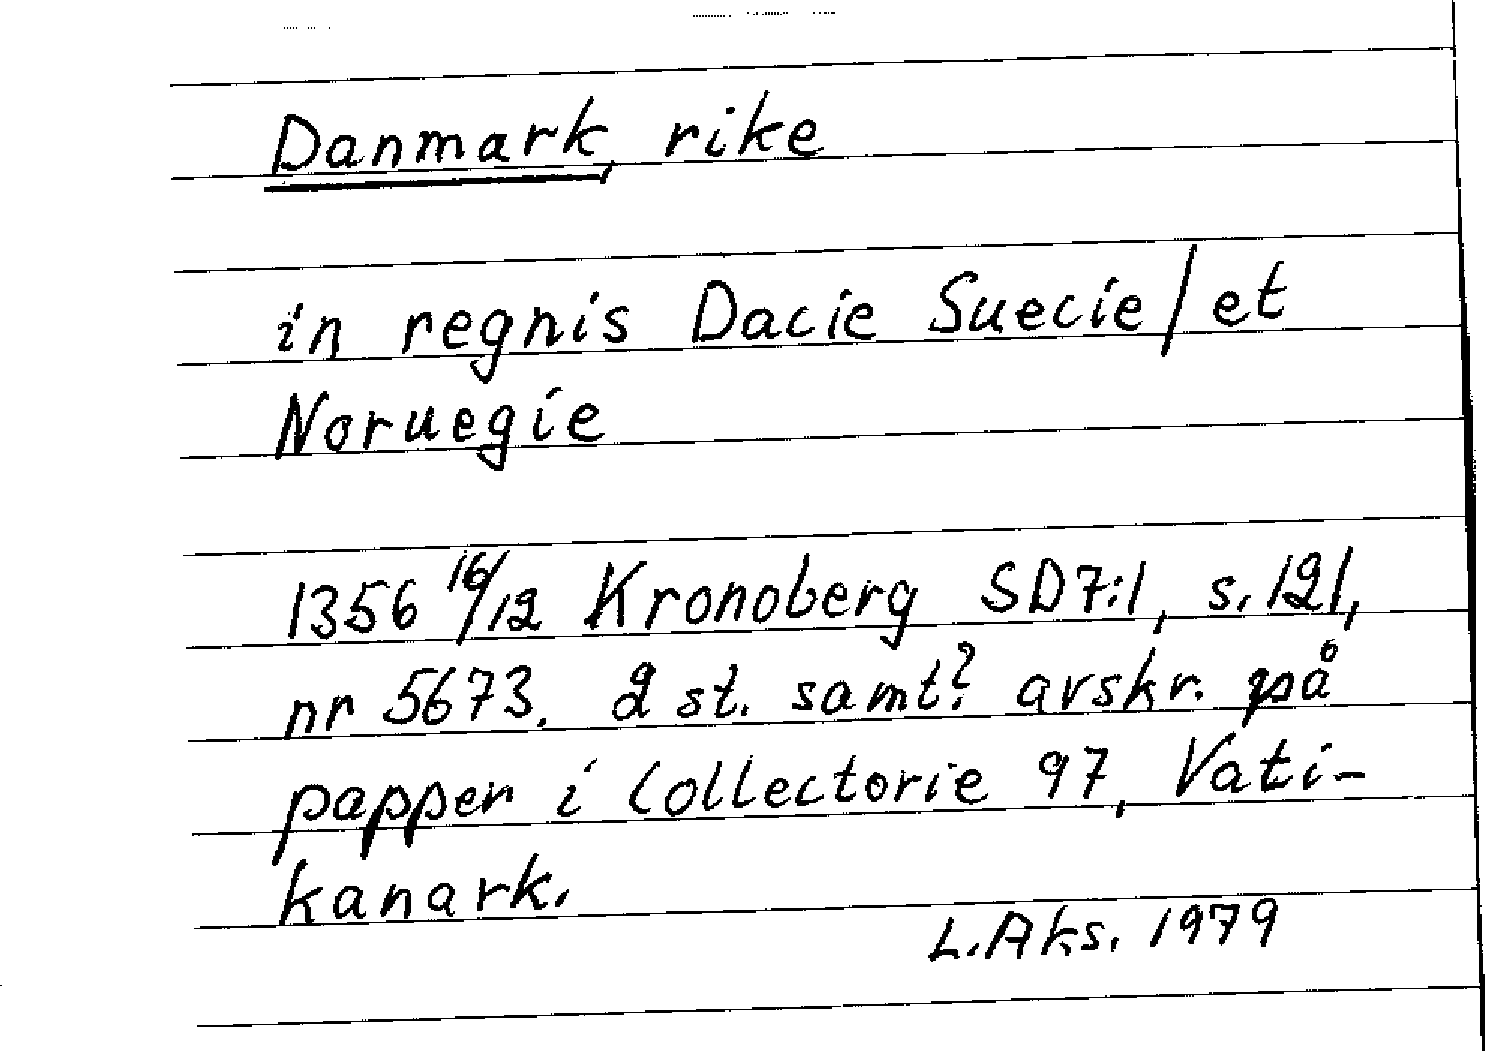 Danmark, rike
in regnis Dacie Suecie/et
Noruegie
1356 16/12 Kronoberg SD7:1, s. 121,
nr 5673. 2 st. samt? avskr. på
papper i Collectorie 97, Vati-
kanark.
L.Aks. 1979